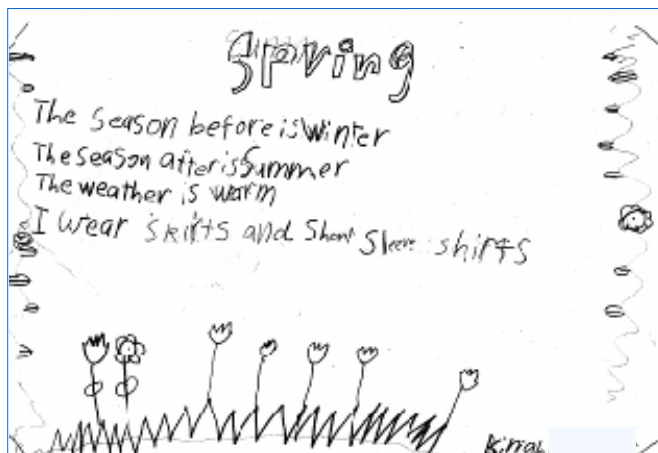 Spring
The season before is winter
The season after is Summer
The weather is warm
I wear skirts and Short Sleeve shirts